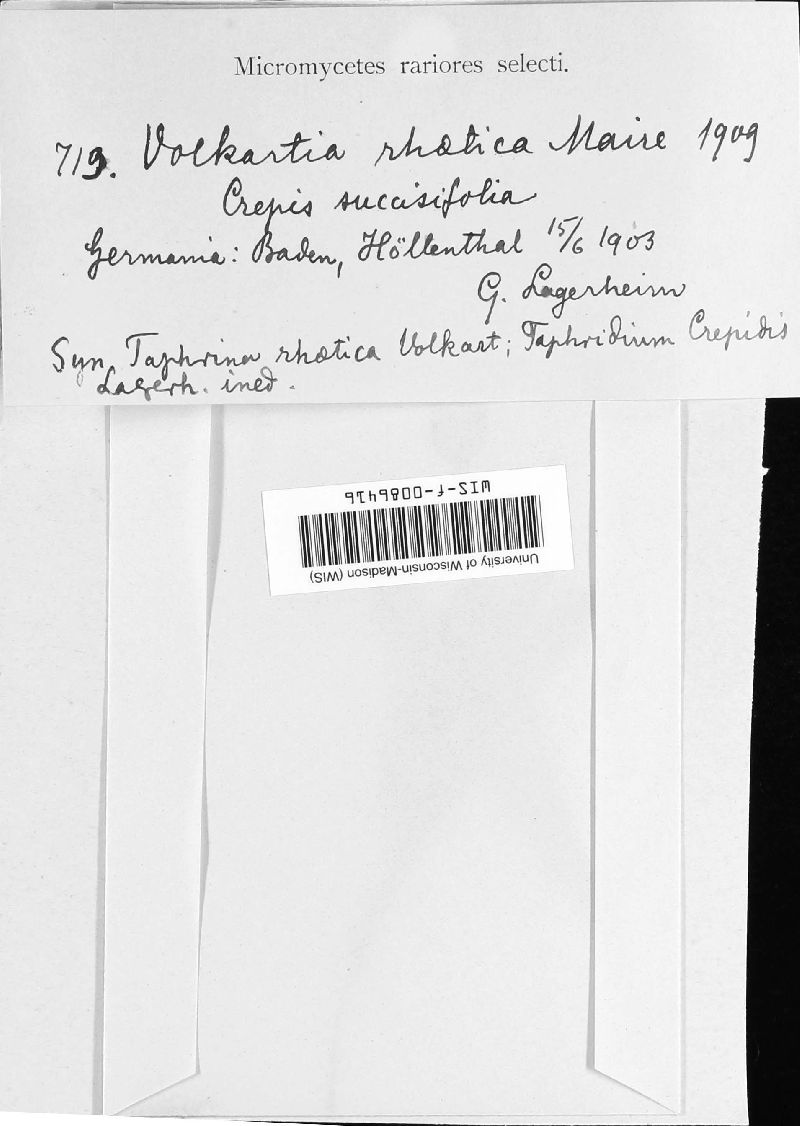 Micromycetes rariores selecti.
719. Volkartia rhætica Maire 1909
Crepis succisifolia
Germania: Baden, Höllenthal 15/6 1903
G. Lagerheim
Syn. Taphrina rhætica Volkart; Taphridium Crepidis
Lagerh. ined.
WIS-f-0086416
University of Wisconsin-Madison (WIS)